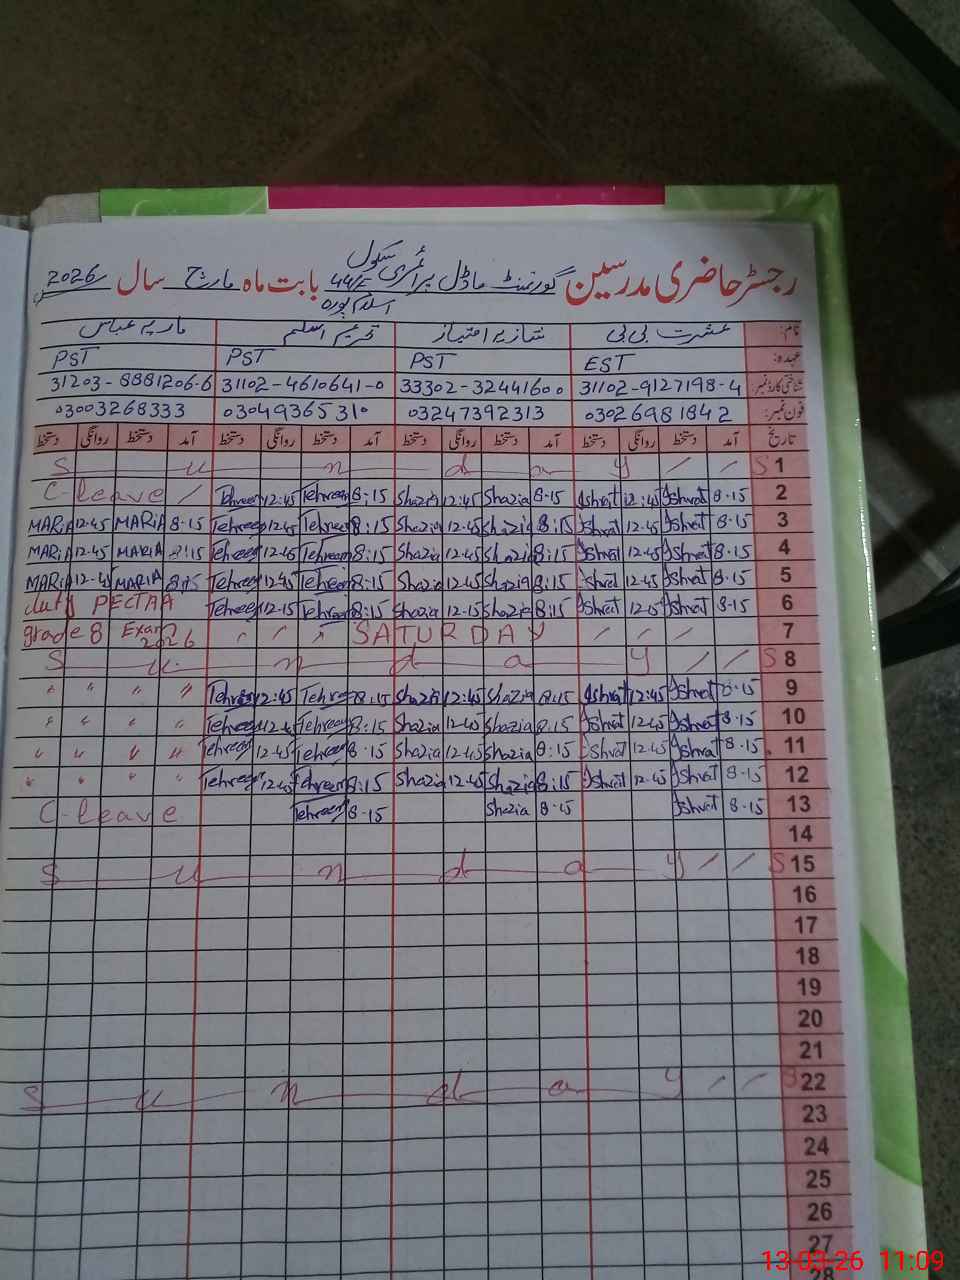 رجسٹر حاضری مدرسین گورنمنٹ ماڈل پرائمری سکول 44/E اسلام پورہ بابت ماہ مارچ سال 2026
نام: عشرت بی بی شازیہ امتیاز تحریم اسلم ماریہ عباس
عہدہ: EST PST PST PST
شناختی کارڈ نمبر: 31102-9127198-4 33302-32441600 31102-4610641-0 31203-8881206-6
فون نمبر: 03026981842 03247392313 03049365310 03003268333
تاریخ آمد دستخط روانگی دستخط آمد دستخط روانگی دستخط آمد دستخط روانگی دستخط آمد دستخط روانگی دستخط
S u n d a y / / S 1
C-leave / Tehreem 12:45 Tehreem 8:15 Shazia 12:45 Shazia 8-15 Ishrat 12:45 Ishrat 8-15 2
MARIA 12-45 MARIA 8-15 Tehreem 12:45 Tehreem 8:15 Shazia 12-45 Shazia 8:15 Ishrat 12-45 Ishrat 8-15 3
MARIA 12-45 MARIA 8:15 Tehreem 12:45 Tehreem 8:15 Shazia 12-45 Shazia 8:15 Ishrat 12-45 Ishrat 8-15 4
MARIA 12-45 MARIA 8:15 Tehreem 12:45 Tehreem 8:15 Shazia 12-45 Shazia 8:15 Ishrat 12-45 Ishrat 8-15 5
duty PECTAA Tehreem 12-15 Tehreem 8:15 Shazia 12-15 Shazia 8:15 Ishrat 12-15 Ishrat 8-15 6
grade 8 Exam 2026 〃 〃 〃 SATURDAY / / / 7
S u n d a y / / S 8
〃 〃 〃 〃 Tehreem 12:45 Tehreem 8-15 Shazia 12:45 Shazia 8-15 Ishrat 12:45 Ishrat 8-15 9
〃 〃 〃 〃 Tehreem 12:45 Tehreem 8:15 Shazia 12-45 Shazia 8:15 Ishrat 12-45 Ishrat 8-15 10
〃 〃 〃 〃 Tehreem 12-45 Tehreem 8-15 Shazia 12-45 Shazia 8-15 Ishrat 12-45 Ishrat 8-15 11
〃 〃 〃 〃 Tehreem 12-45 Tehreem 8:15 Shazia 12-45 Shazia 8:15 Ishrat 12-45 Ishrat 8-15 12
C-leave Tehreem 8-15 Shazia 8-15 Ishrat 8-15 13
14
S u n d a y / / S 15
16
17
18
19
20
21
S u n d a y / / S 22
23
24
25
26
27
28
13-03-26 11:09